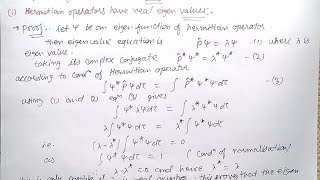 (i) Hermitian operators have real eigen values:-
→ Proof:- Let Ψ be an eigen function of Hermitian operator
then eigen value equation is P̂Ψ = λΨ (1) where λ is
eigen value.
taking its complex conjugate P̂*Ψ* = λ*Ψ* - (2)
according to Condn of Hermitian operator
∫Ψ* P̂Ψ dτ = ∫ P̂*Ψ* Ψ dτ - (3)
using (1) and (2) eqn (3) gives
∫Ψ* λΨ dτ = ∫ λ*Ψ* Ψ dτ
λ∫Ψ*Ψ dτ = λ* ∫Ψ*Ψ dτ
i.e. (λ-λ*) ∫Ψ*Ψ dτ = 0
as ∫Ψ*Ψ dτ = 1 { Condn of normalisation }
is only λ-λ* = 0 and hence λ* = λ
this proved that the eigen